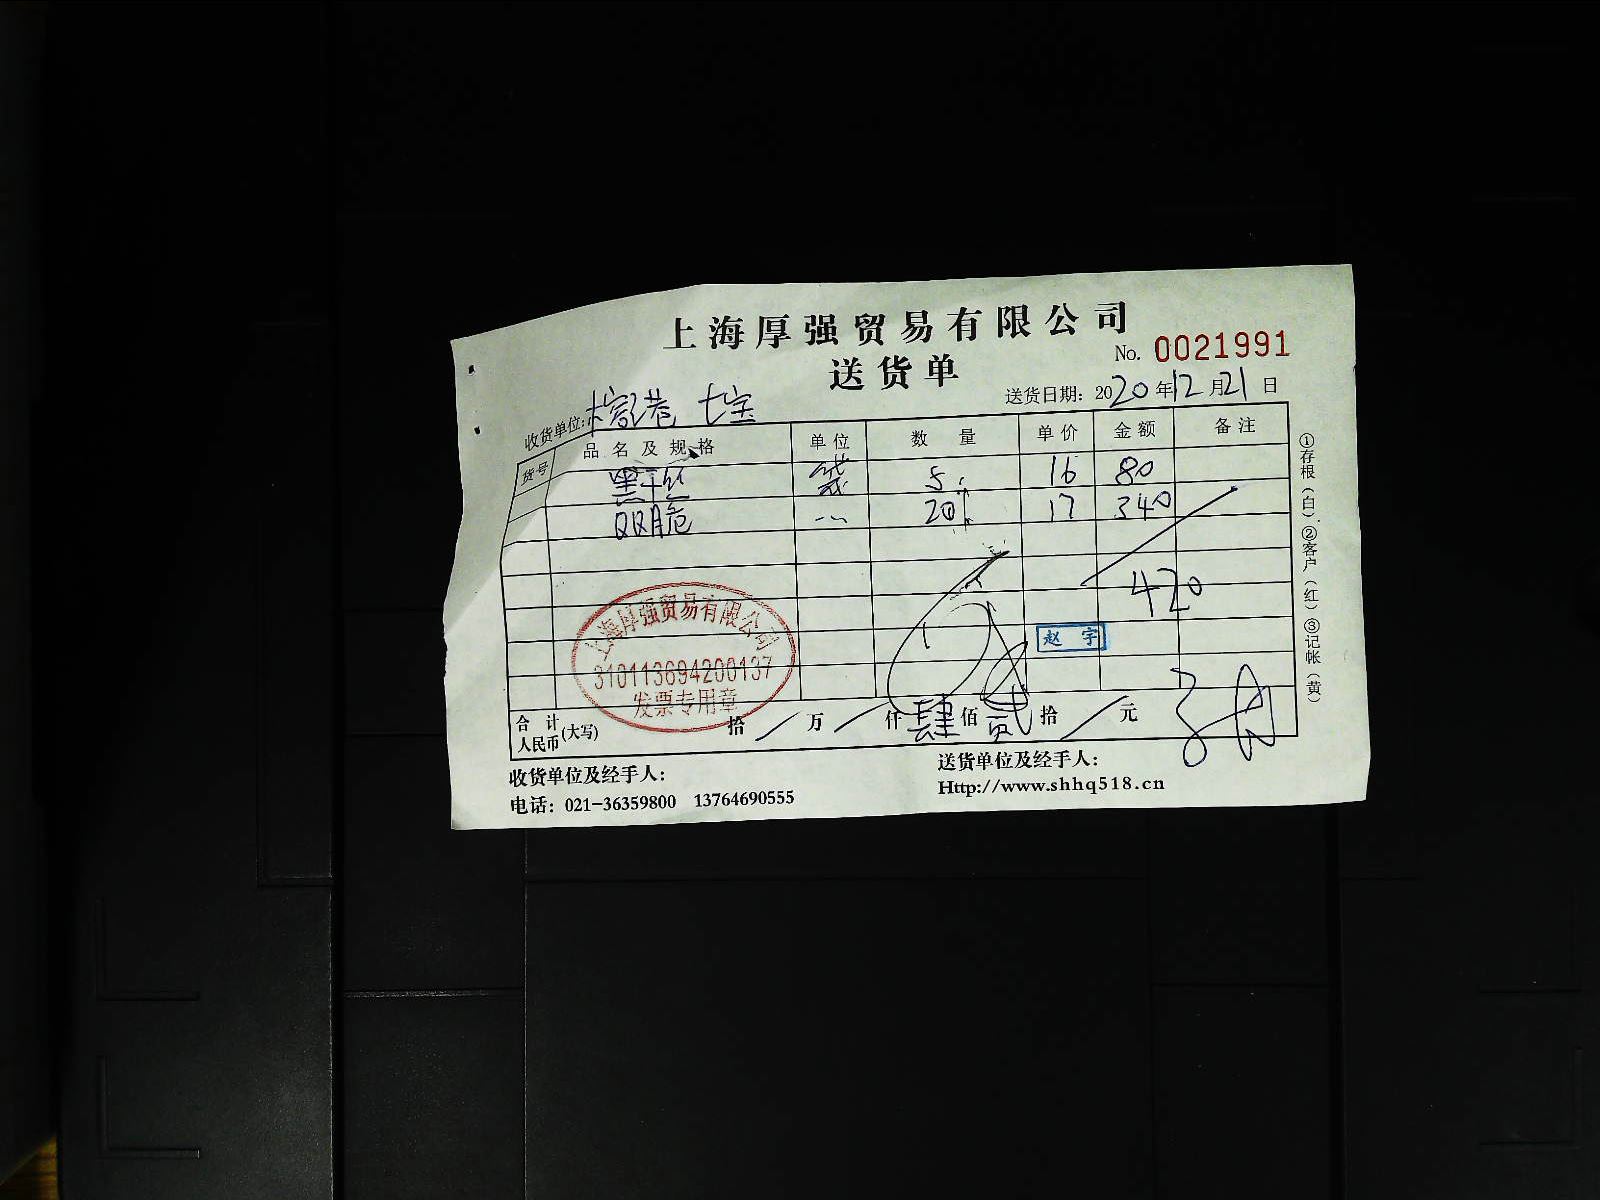 上海厚强贸易有限公司
送货单
No. 0021991
收货单位: 榕港 七宝
送货日期: 2020年12月21日
货号 品名及规格 单位 数量 单价 金额 备注
黑千丝 袋 5 16 80
QQ脆 〃 20 17 340
420
上海厚强贸易有限公司
310113694200137
发票专用章
赵宇
合计人民币(大写) 拾 / 万 / 仟肆佰贰拾 / 元
收货单位及经手人:
送货单位及经手人:
电话: 021-36359800 13764690555
Http://www.shhq518.cn
①存根(白)②客户(红)③记帐(黄)